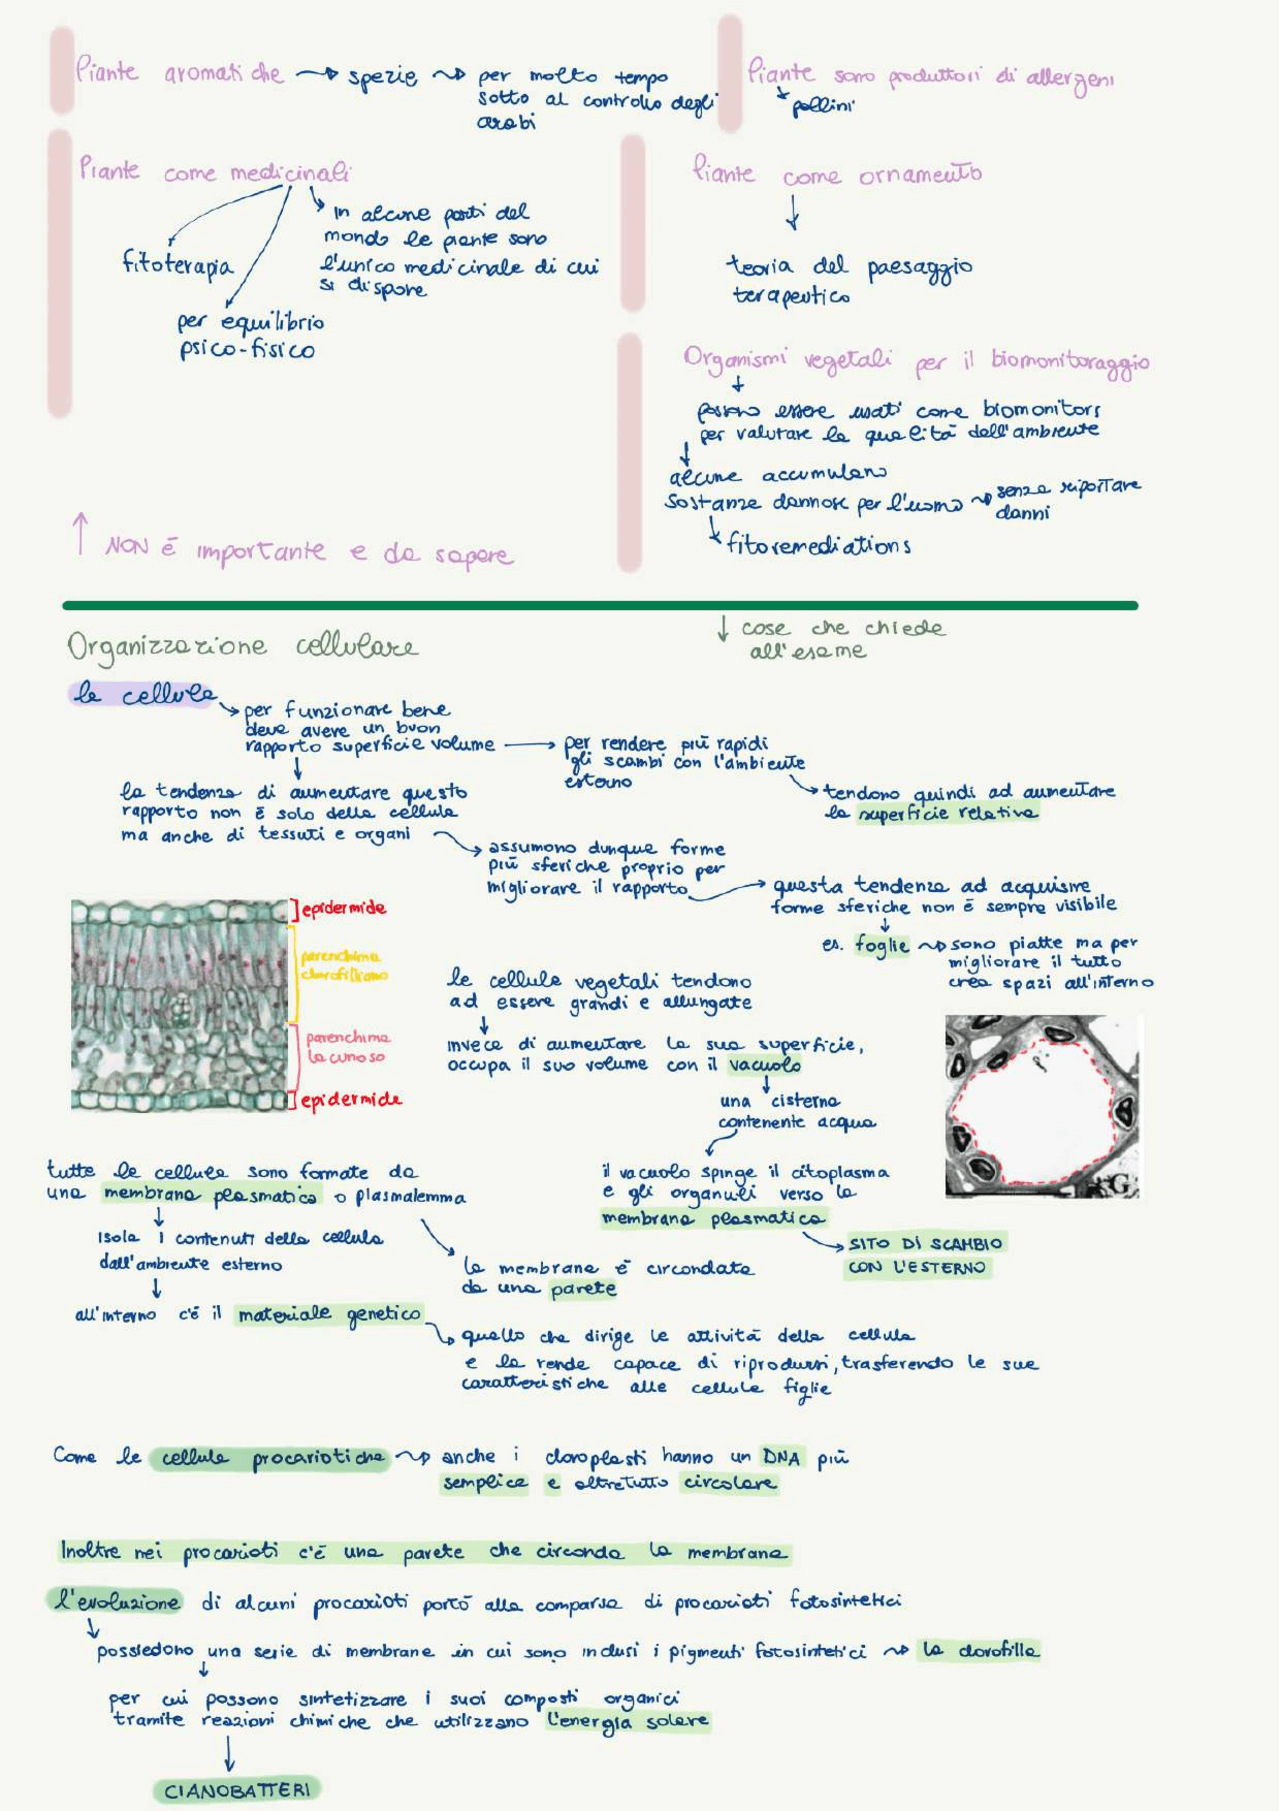 Piante aromatiche → spezie ⤳ per molto tempo
sotto al controllo degli
arabi
Piante sono produttori di allergeni
pollini
Piante come medicinali
fitoterapia
per equilibrio
psico-fisico
In alcune parti del
mondo le piante sono
l'unico medicinale di cui
si dispore
Piante come ornamento
↓
teoria del paesaggio
terapeutico
Organismi vegetali per il biomonitoraggio
↓
possono essere usati come biomonitors
per valutare la qualità dell'ambiente
↓
alcune accumulano
sostanze dannose per l'uomo ⤳ senza riportare
danni
fitoremediations
↑ NON è importante e da sapere
↓ cose che chiede
all'esame
Organizzazione cellulare
la cellula
per funzionare bene
deve avere un buon
rapporto superficie volume → per rendere più rapidi
gli scambi con l'ambiente
esterno
tendono quindi ad aumentare
la superficie relativa
↓
la tendenza di aumentare questo
rapporto non è solo della cellula
ma anche di tessuti e organi
assumono dunque forme
più sferiche proprio per
migliorare il rapporto
questa tendenza ad acquisire
forme sferiche non è sempre visibile
↓
es. foglie ⤳ sono piatte ma per
migliorare il tutto
crea spazi all'interno
epidermide
parenchima
clorofilliano
parenchima
lacunoso
epidermide
le cellule vegetali tendono
ad essere grandi e allungate
↓
invece di aumentare la sua superficie,
occupa il suo volume con il vacuolo
↓
una cisterna
contenente acqua
il vacuolo spinge il citoplasma
e gli organuli verso la
membrana plasmatica
SITO DI SCAMBIO
CON L'ESTERNO
G
tutte le cellule sono formate da
una membrana plasmatica o plasmalemma
↓
Isola i contenuti della cellula
dall'ambiente esterno
↓
all'interno c'è il materiale genetico
la membrana è circondata
da una parete
quello che dirige le attività della cellula
e la rende capace di riprodursi, trasferendo le sue
caratteristiche alle cellule figlie
Come le cellule procariotiche ⤳ anche i cloroplasti hanno un DNA più
semplice e oltretutto circolare
Inoltre nei procarioti c'è una parete che circonda la membrana
l'evoluzione di alcuni procarioti portò alla comparsa di procarioti fotosintetici
possiedono una serie di membrane in cui sono inclusi i pigmenti fotosintetici ⤳ la clorofilla
↓
per cui possono sintetizzare i suoi composti organici
tramite reazioni chimiche che utilizzano l'energia solare
↓
CIANOBATTERI